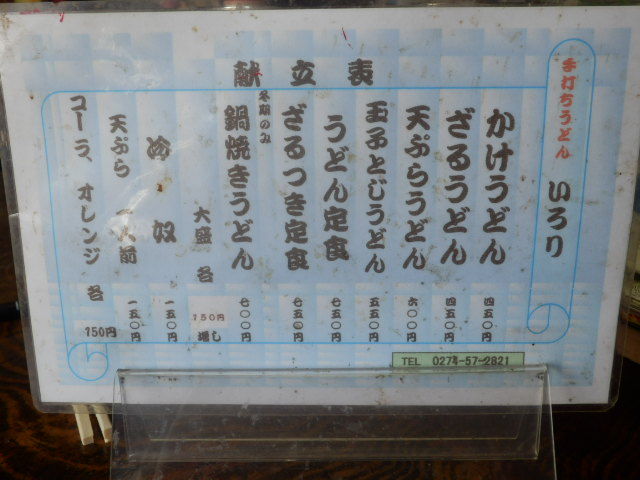 献立表
手打ちうどん いろり
かけうどん 四五〇円
ざるうどん 四五〇円
天ぷらうどん 六〇〇円
玉子とじうどん 五五〇円
うどん定食 七五〇円
ざるつき定食 七五〇円
冬期のみ
鍋焼きうどん 七〇〇円
大盛 各 150円 増し
冷奴 一五〇円
天ぷら 一人前 一五〇円
コーラ、オレンジ 各 150円
TEL 0274-57-2821